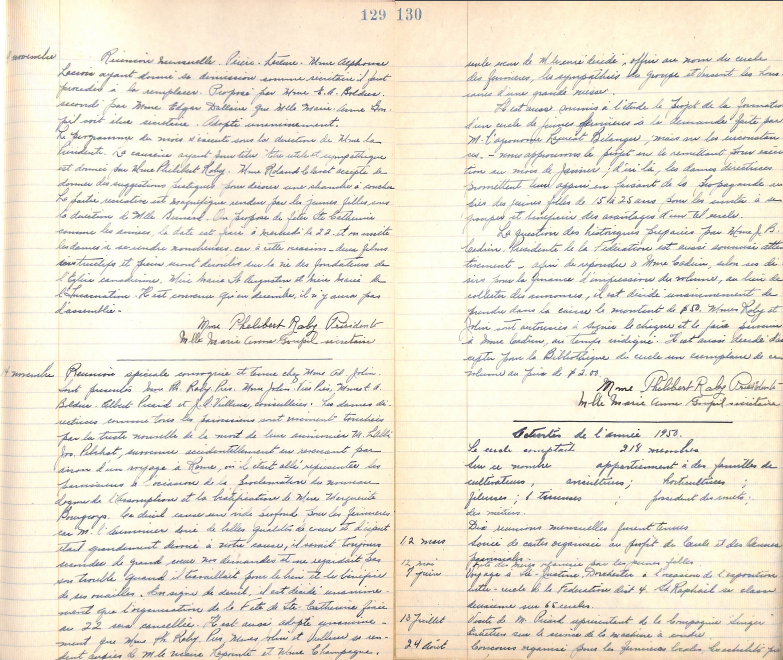 129 130
novembre
Réunion mensuelle. Prière. Lecture. Mme Alphonse
ayant donné sa démission comme secrétaire il faut
procéder à la remplacer. Proposé par Mme E. A. Bolduc
secondé par Mme Edgar Dallaire que Mlle Marie Anne Gou-
pil soit élue secrétaire. Adopté unanimement.
Le programme du mois s'exécute sous la direction de Mme la
Présidente. La causerie ayant pour titre "être utile et sympathique"
est donnée par Mme Philibert Raby. Mme Roland accepte de
donner des suggestions pratiques pour décorer une chambre à coucher
La partie récréative est magnifique rendue par les jeunes filles sous
la direction de Mlle. On propose de fêter Ste Catherine
comme les années, la date est fixée à mercredi le 22, et on invite
les dames à se rendre nombreuses, car à cette occasion deux films
instructifs et pieux seront déroulés sur la vie des fondateurs de
l'Eglise canadienne, Mère Marie St Augustin et Mère Marie de
l'Incarnation. Il est convenu qu'en décembre, il n'y aura pas
d'assemblée.
Mme Philibert Raby Présidente
Mlle Marie Anna Goupil secrétaire
novembre
Réunion spéciale convoquée et tenue chez Mme Ad. Jolin.
Sont présentes Mme Ph. Raby Prés. Mme Jolin Vice Prés, Mmes E. A.
Bolduc. Albert Picard et J. A. Veilleux, conseillères. Les dames di-
rectives comme tous les paroissiens sont vivement touchées
par la triste nouvelle de la mort de leur aumônier M. l'abbé
Jos. Pelchat, survenue accidentellement en revenant par
avion d'un voyage à Rome, où il était allé représenter les
à l'occasion de la proclamation du nouveau
dogme de l'Assomption et la béatification de Mère Marguerite
Bourgeoys. Ce deuil cause un vide profond pour les fermières
car M. l'aumônier doué de belles qualités de coeur et d'esprit
était grandement dévoué à notre cause, il savait toujours
seconder de grand coeur nos demandes et ne regardait pas
son trouble quand il travaillait pour le bien et le bénéfice
de ses ouailles. En signe de deuil, il est décidé unanime-
ment que l'organisation de la Fête de Ste Catherine fixée
au 22 sera cancellée. Il est aussi adopté unanime-
ment que Mme Ph. Raby, Prés, Mmes Jolin et Veilleux se ren-
dent auprès de M. le vicaire Lapointe et Mme Champagne,
seule soeur de M. le curé décédé, offrir au nom du cercle
des fermières, les sympathies du groupe et versent les hono-
raires d'une grande messe.
Il est aussi soumis à l'étude le projet de la formation
d'un cercle de jeunes fermières de la demande faite par
M. l'agronome Bélanger, mais vu les circonstan-
ces - nous approuvons le projet en le remettant pour exécu-
tion au mois de janvier; d'ici là, les dames directrices
promettent leur appui en faisant de la propagande au-
près des jeunes filles de 15 à 25 ans pour les inviter à se
grouper et bénéficier des avantages d'un tel cercle.
La question des historiques préparées par Mme J. B.
Cadrin, Présidente de la Fédération est aussi soumise atten-
tivement - afin de répondre à Mme Cadrin, selon ses dé-
sirs pour la finance d'impression du volume, au lieu de
collecter des annonces, il est décidé unanimement de
prendre dans la caisse le montant de $50. Mmes Raby et
Jolin sont autorisées à signer le chèque et le faire parvenir
à Mme Cadrin, au temps indiqué. Il est aussi décidé d'ac-
cepter pour la Bibliothèque du cercle un exemplaire de ce
volume au prix de $2.00.
Mme Philibert Raby Présidente
Mlle Marie Anna Goupil secrétaire
Activités de l'année 1950.
Le cercle comptait 218 membres
Sur ce nombre appartiennent à des familles de
cultivateurs, avicultrices; horticultrices;
fileuses; 6 tisseuses; possèdent des ;
des métiers.
Dix réunions mensuelles furent tenues
12 mars
Soirée de cartes organisée au profit du Cercle et des Oeuvres
paroissiales.
12 mai
Fête des mères organisée par les jeunes filles.
7 juin
Voyage à Ste Justine Dorchester à l'occasion de l'exposition
notre cercle de la Fédération dist 4. St Raphaël se classe
deuxième sur 65 cercles.
13 Juillet
Visite de M. Picard représentant de la Compagnie Singer
Entretien sur le service de la machine à coudre.
24 août
Concours organisé pour les fermières